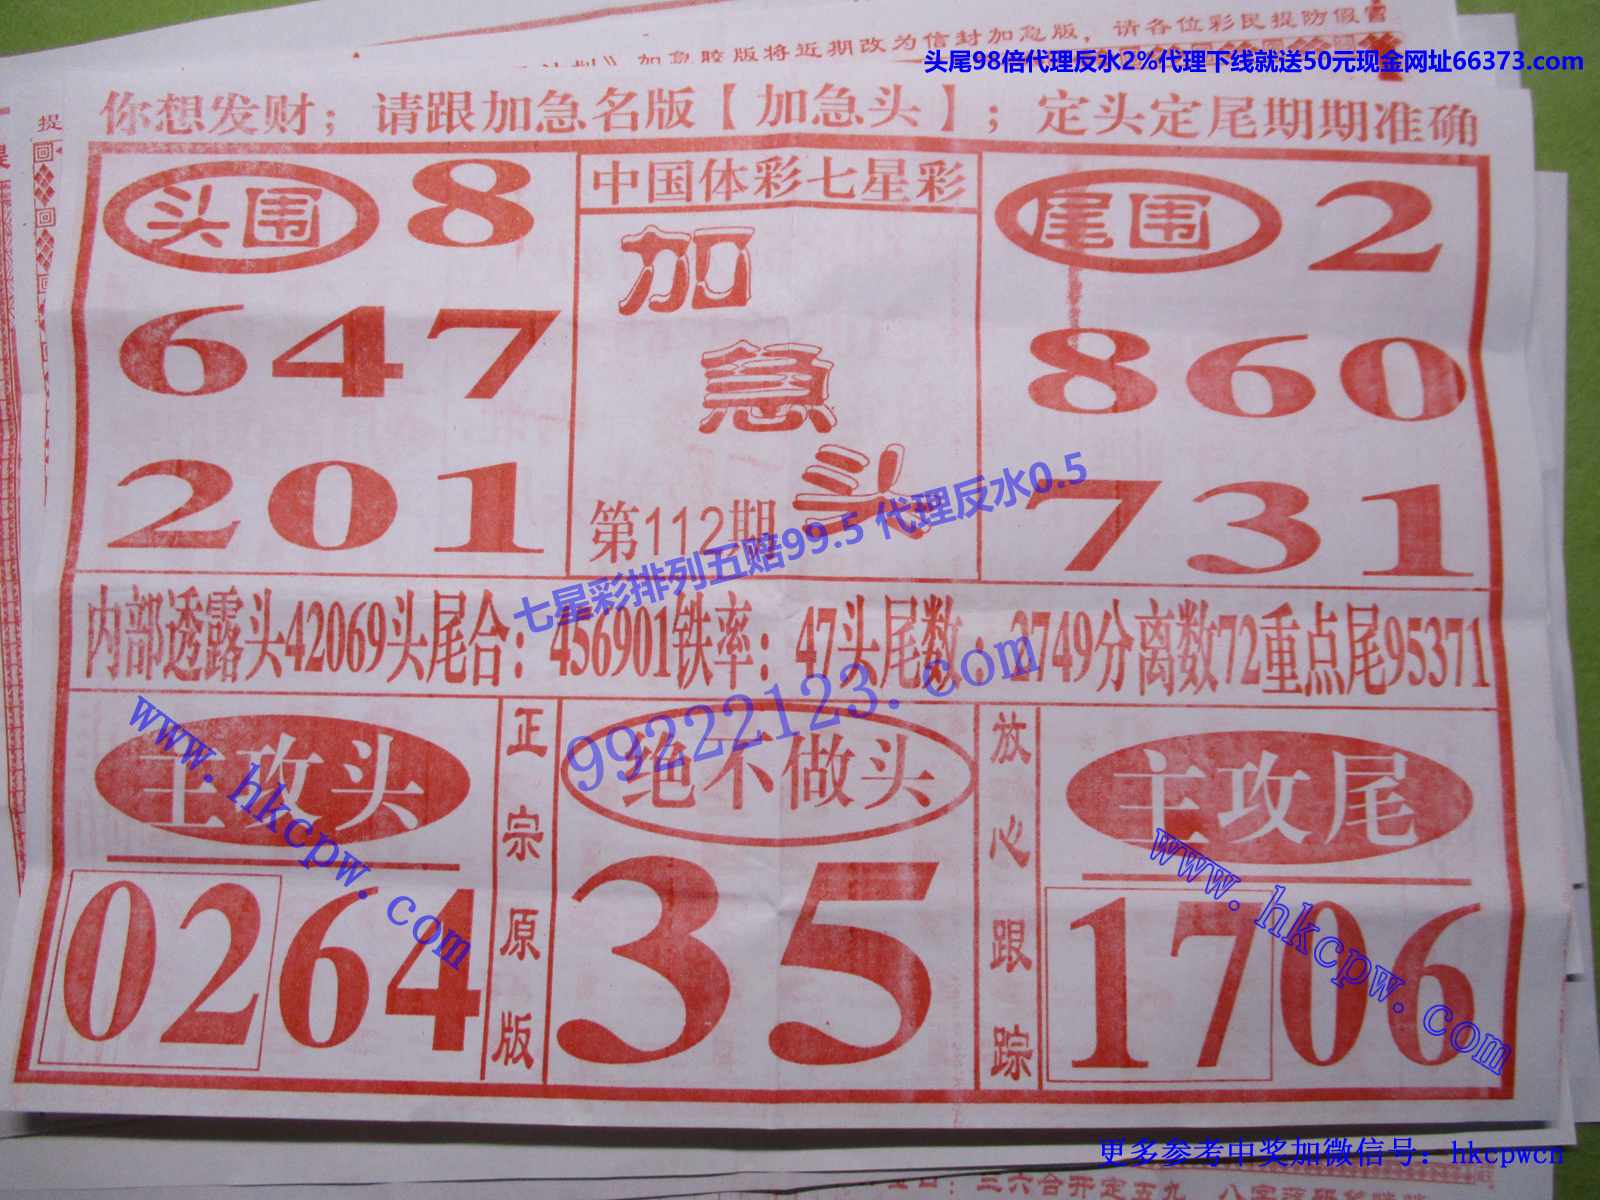 加急胶版将近期改为信封加急版，请各位彩民提防假冒
头尾98倍代理反水2%代理下线就送50元现金网址66373.com
提
你想发财；请跟加急名版【加急头】；定头定尾期期准确
头围 8
647
201
中国体彩七星彩
加急头
第112期
尾围 2
860
731
七星彩排列五赔99.5 代理反水0.5
内部透露头42069头尾合：456901铁率：47头尾数：2749分离数72重点尾95371
99222123.com
www.hkcpw.com
主攻头
0264
正宗原版
绝不做头
35
放心跟踪
主攻尾
1706
www.hkcpw.com
更多参考中奖加微信号：hkcpwcn
三六合开定五九